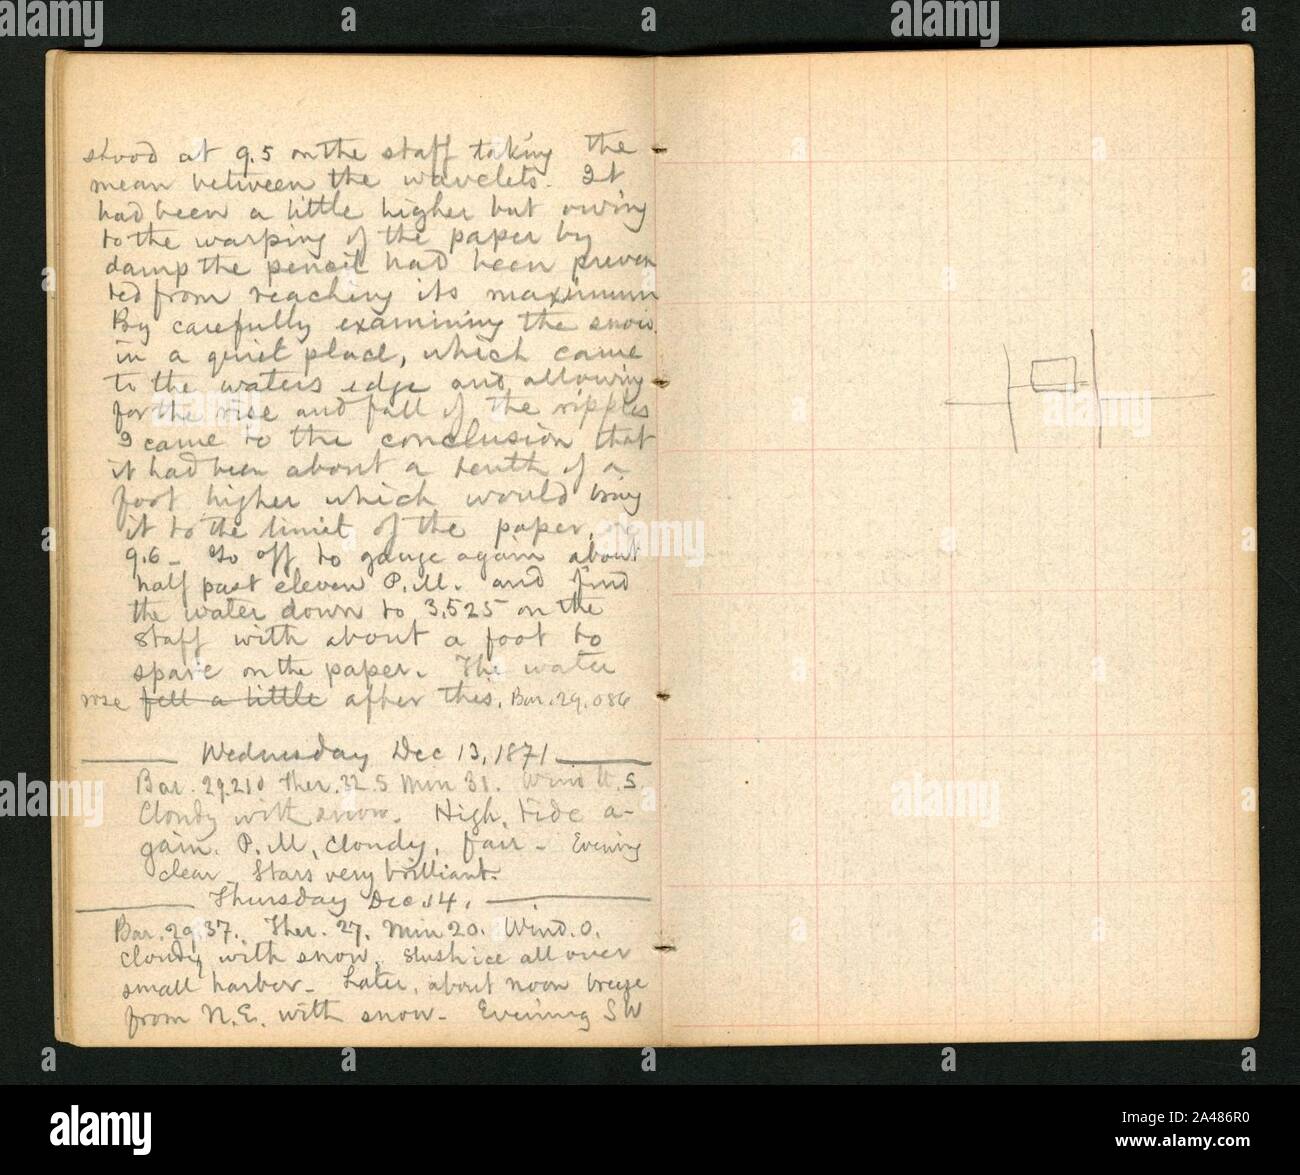 stood at 9.5 on the staff taking the
mean between the wavelets. It
had been a little higher but owing
to the warping of the paper by
damp the pencil had been preven
ted from reaching its maximum
By carefully examining the snow
in a quiet place, which came
to the waters edge and allowing
for the rise and fall of the ripples
I came to the conclusion that
it had been about a tenth of a
foot higher which would bring
it to the limit of the paper, or
9.6 - Go off to gauge again about
half past eleven P.M. and find
the water down to 3.525 on the
staff with about a foot to
spare on the paper. The water
rose fell a little after this. Bar. 29.086
Wednesday Dec 13, 1871
Bar. 29.210 Ther. 32.5 Min 31. Wind S.
Cloudy with snow. High tide a-
gain. P.M. cloudy, fair - Evening
clear - Stars very brilliant.
Thursday Dec. 14.
Bar. 29.37. Ther. 27. Min 20. Wind. 0.
cloudy with snow, slush ice all over
small harbor - Later, about noon breeze
from N.E. with snow - Evening SW
alamy
Image ID: 2A486R0
www.alamy.com